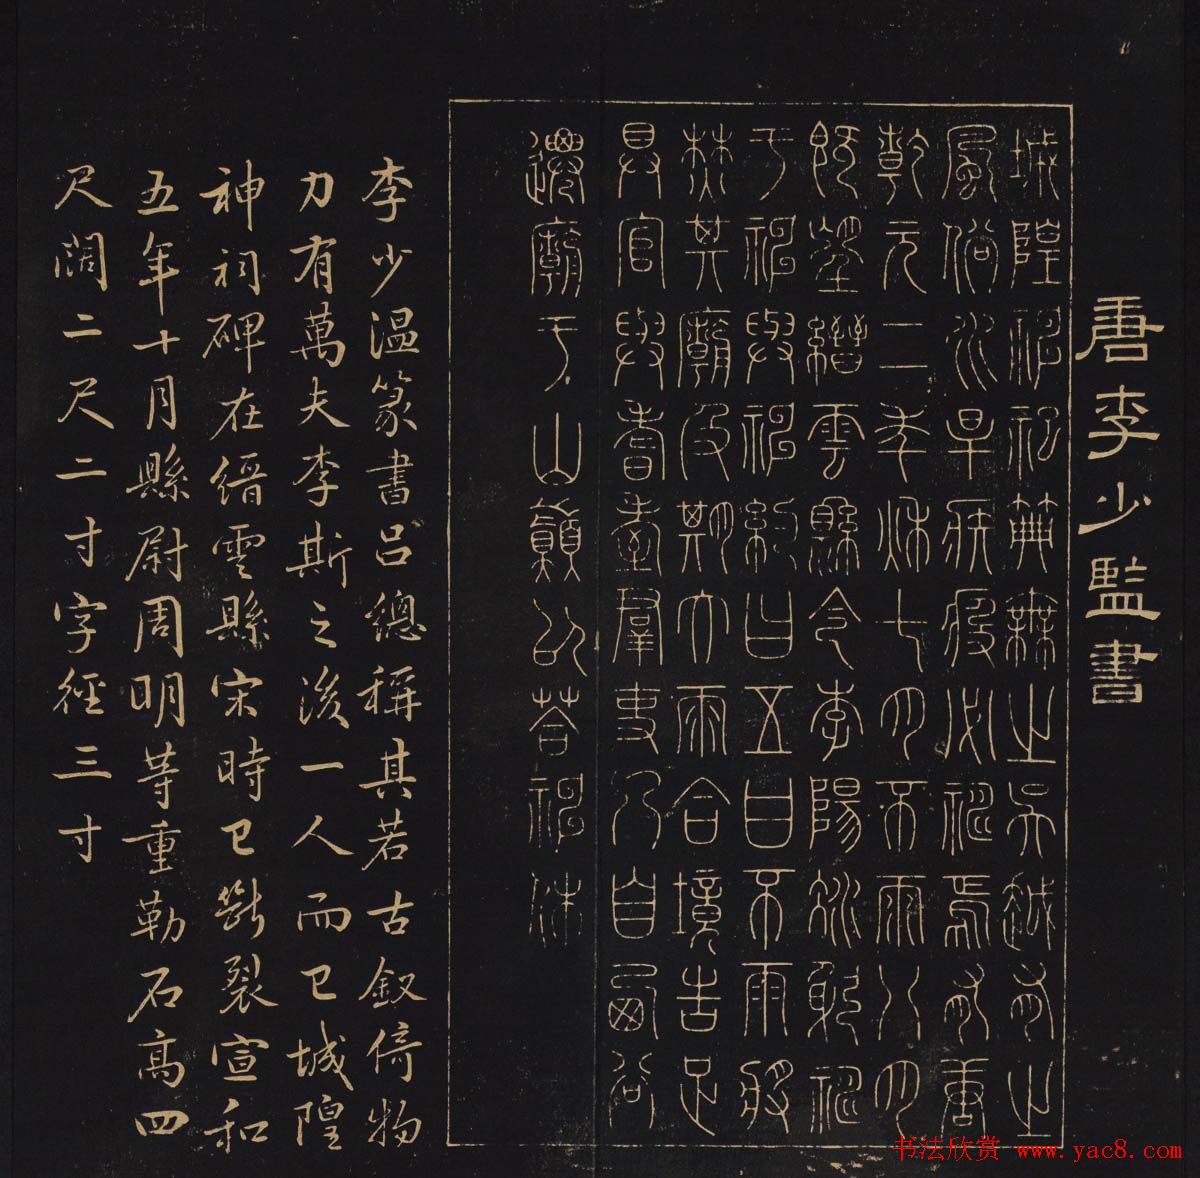 唐李少監書
城隍神祀典無之吳越有之
風俗水旱疾疫必禱焉有唐
乾元二年秋七月不雨八月
既望縉雲縣令李陽冰躬祈
于神與神約曰五日不雨將
焚其廟及期大雨合境告足
具官與耆耋羣吏乃自西谷
遷廟于山巔以荅神休
李少溫篆書呂總稱其若古釵倚物
力有萬夫李斯之後一人而已城隍
神祠碑在縉雲縣宋時已斷裂宣和
五年十月縣尉周明等重勒石高四
尺闊二尺二寸字徑三寸
书法欣赏 www.yac8.com